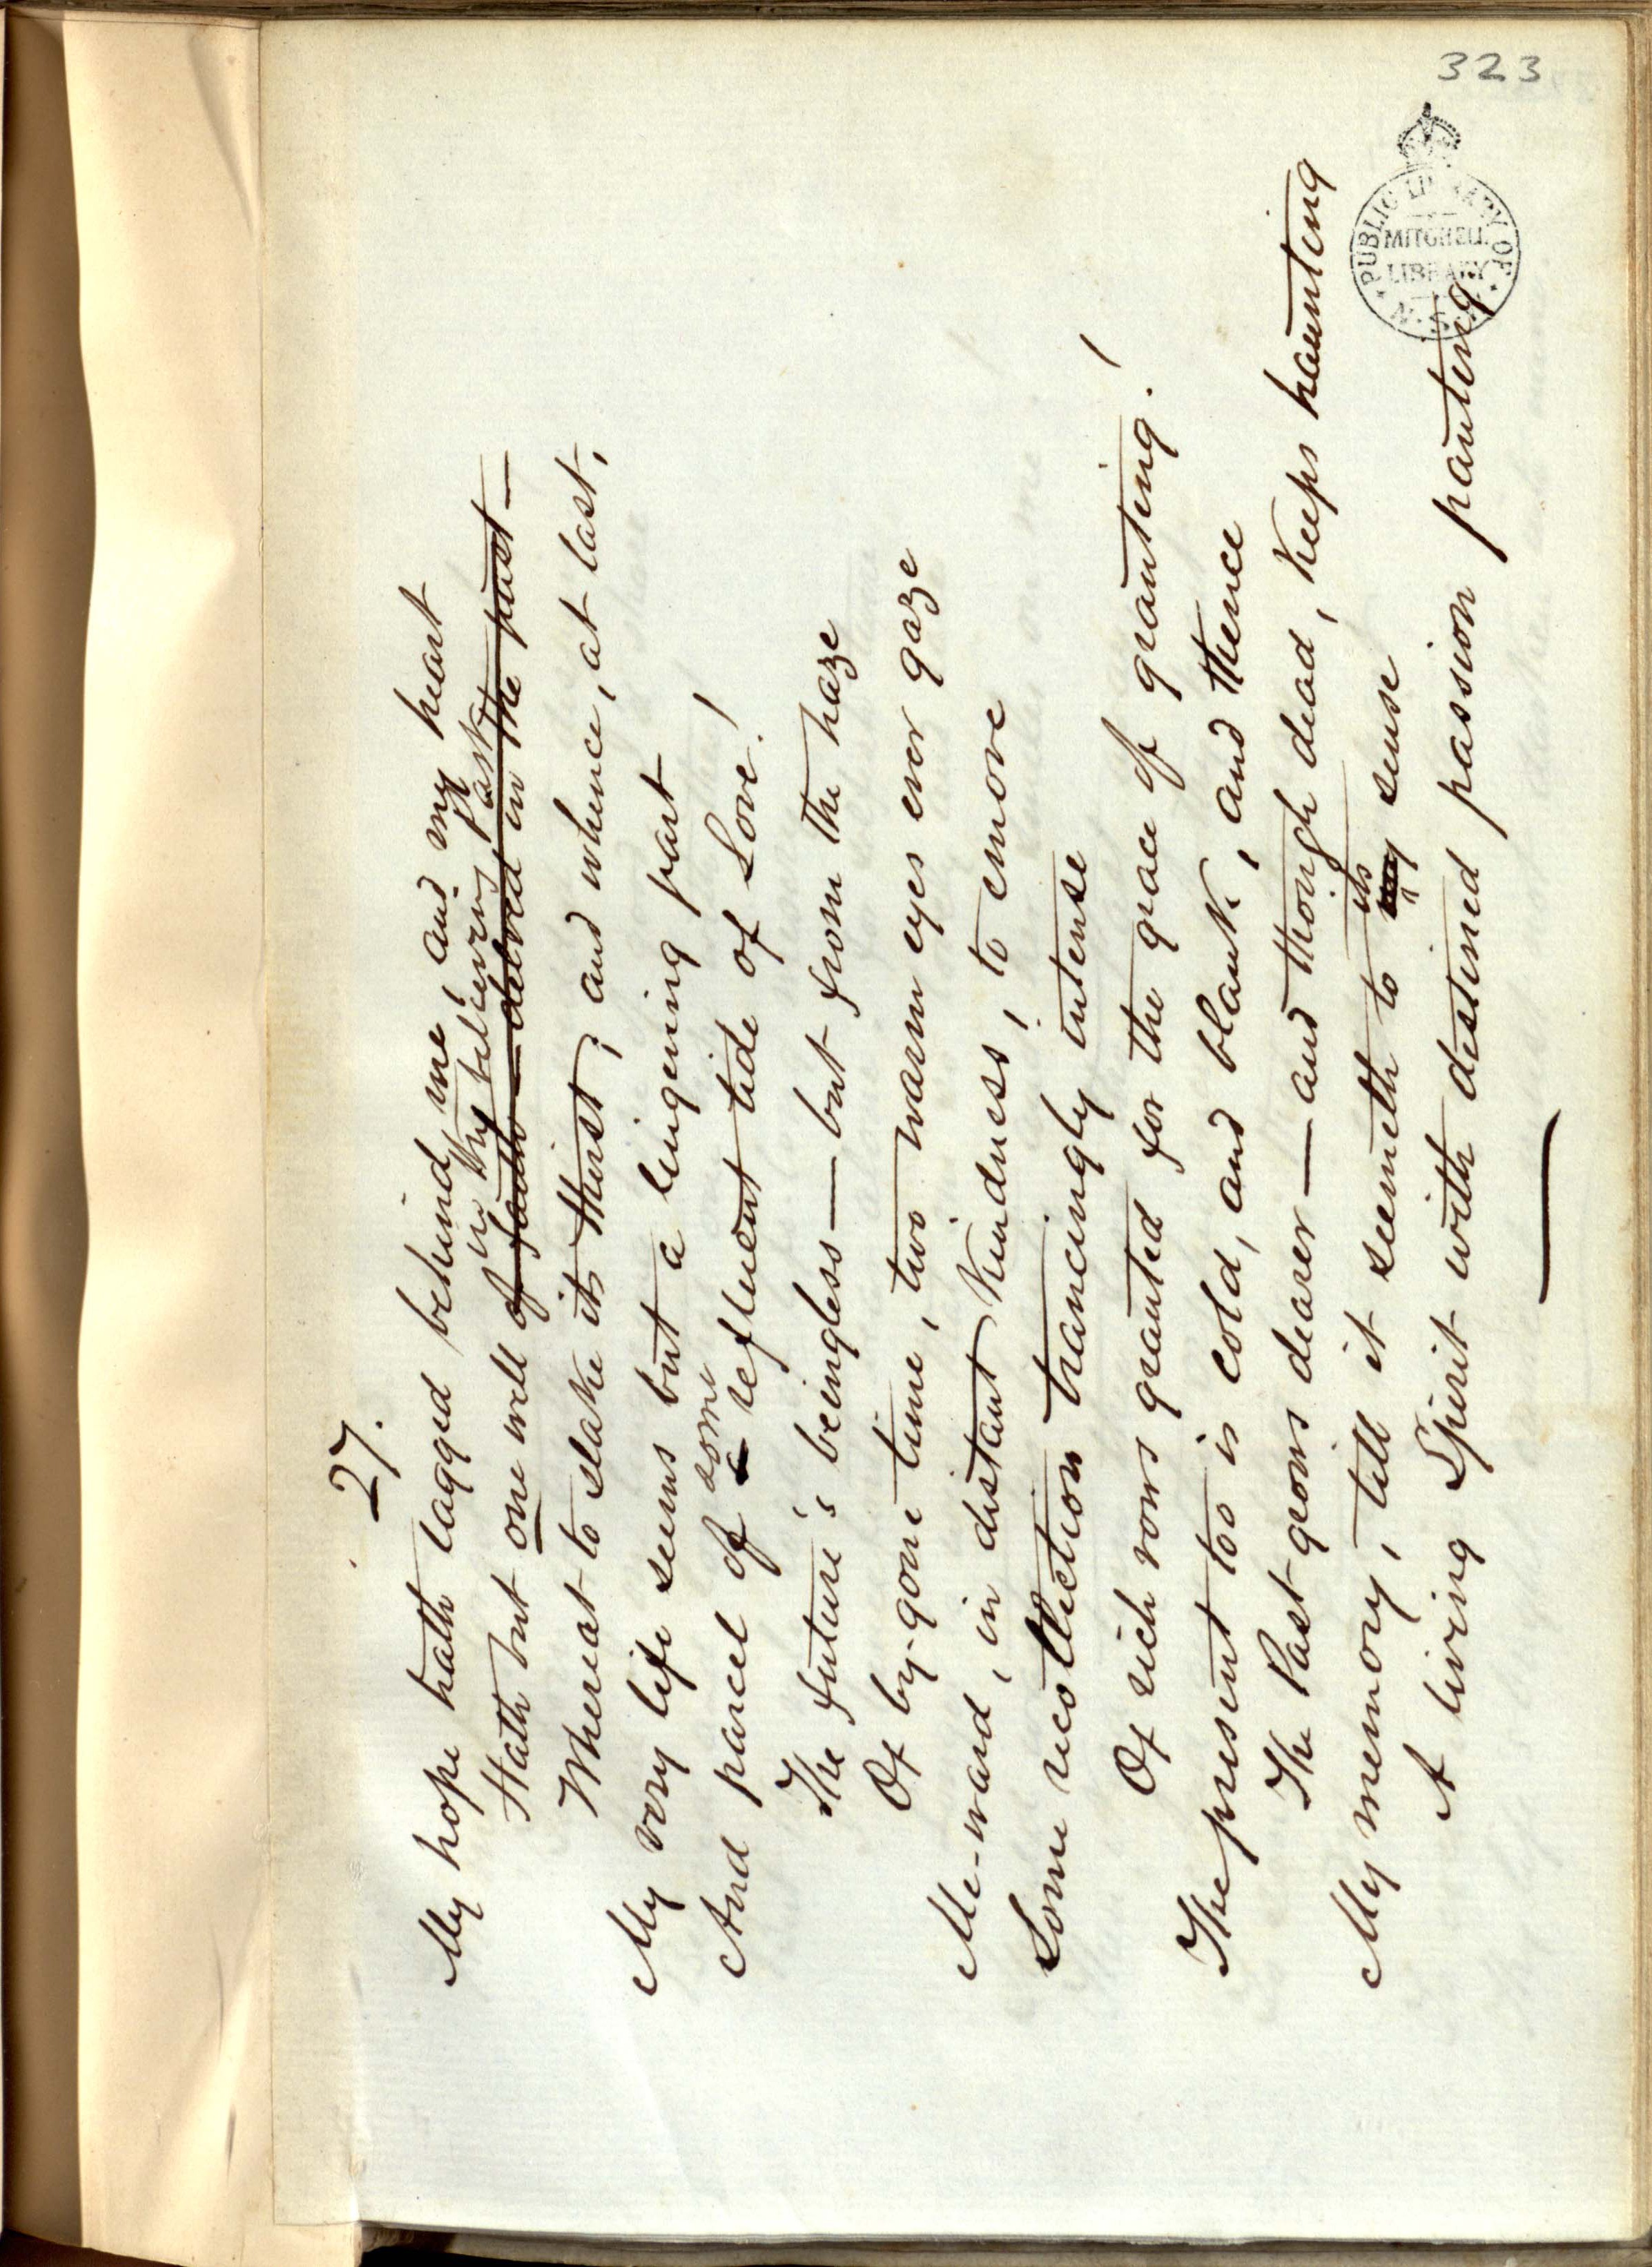 323
27.
My hope hath lagged behind me, and my heart
in the believing past
Hath but one well of faith — delved in the past —
Whereat to slake its thirst; and whence, at last,
My very life seems but a lingering part
some
And parcel of a refluent tide of Love!
The future's beingless — but from the haze
Of by-gone time, two warm eyes ever gaze
Me-ward, in distant kindness, to emove
Some recollection trancingly intense
Of rich vows granted for the grace of granting!
The present too is cold, and blank, and thence
The Past grows dearer — and though dead, keeps haunting
its
My memory, till it seemeth to my sense
A living Spirit with destined passion panting
PUBLIC LIBRARY OF N.S.W.
MITCHELL
LIBRARY